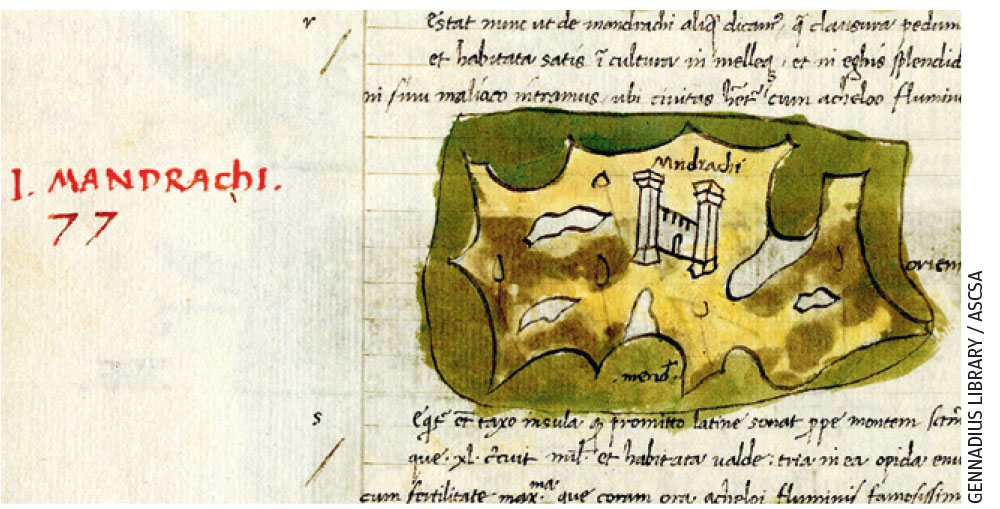 r
Restat nunc ut de mandrachi aliq̃ dicam᷑ q̃ clausura pedum
et habitata satis ĩ cultura in melleq et in eghis splendid
ni sinu maliaco intramus ubi civitas cum acheloo flumini
I. MANDRAChI.
77
Mndrachi
orien
merid.
s
taxo insula promitto latine sonat ppe montem
que · xl · mil et habitata valde : tria in ea opida
cum fertilitate max.ma que coram ora acheloi fluminis famosissim
GENNADIUS LIBRARY / ASCSA